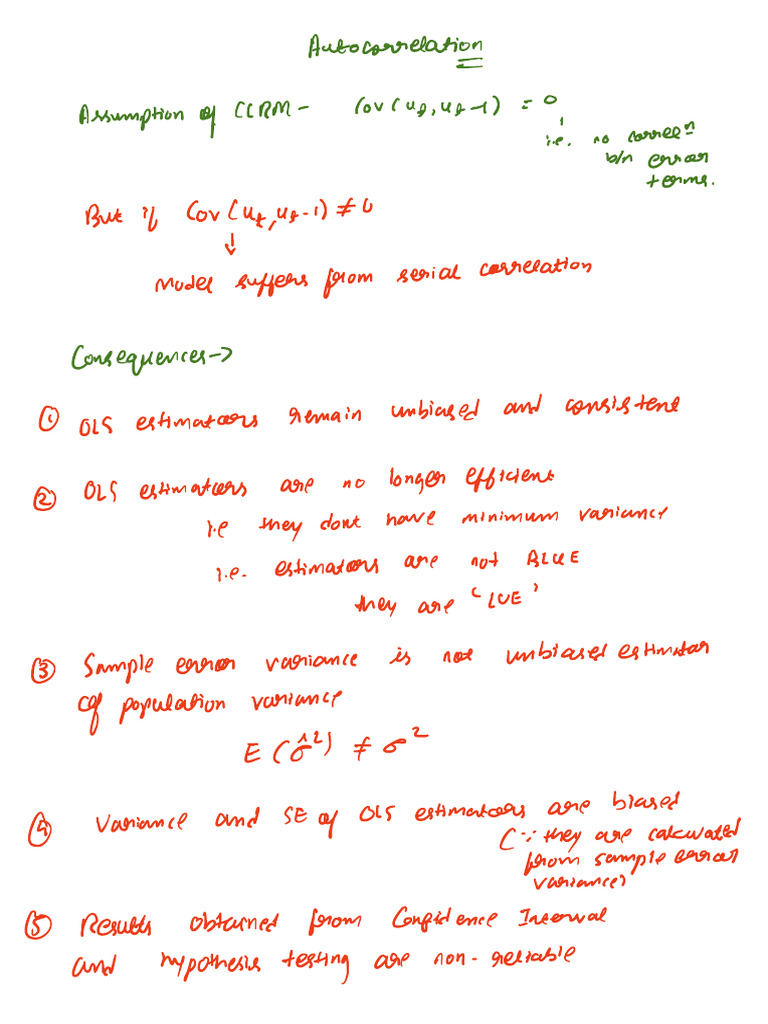 Autocorrelation
Assumption of CLRM - Cov(ut, ut-1) = 0
i.e. no correlⁿ
b/n error
terms.
But if Cov(ut, ut-1) ≠ 0
↓
Model suffers from serial correlation
Consequences →
① OLS estimators remain unbiased and consistent
② OLS estimators are no longer efficient
i.e they dont have minimum variance
i.e. estimators are not BLUE
they are 'LUE'
③ Sample error variance is not unbiased estimator
of population variance
E(σ̂²) ≠ σ²
④ Variance and SE of OLS estimators are biased
(∵ they are calculated
from sample error
variance)
⑤ Results obtained from Confidence Interval
and hypothesis testing are non-reliable